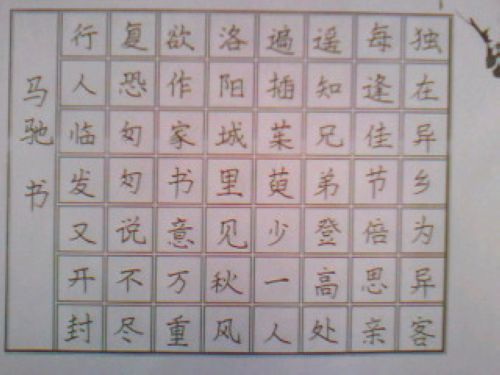 独在异乡为异客
每逢佳节倍思亲
遥知兄弟登高处
遍插茱萸少一人
洛阳城里见秋风
欲作家书意万重
复恐匆匆说不尽
行人临发又开封
马驰书